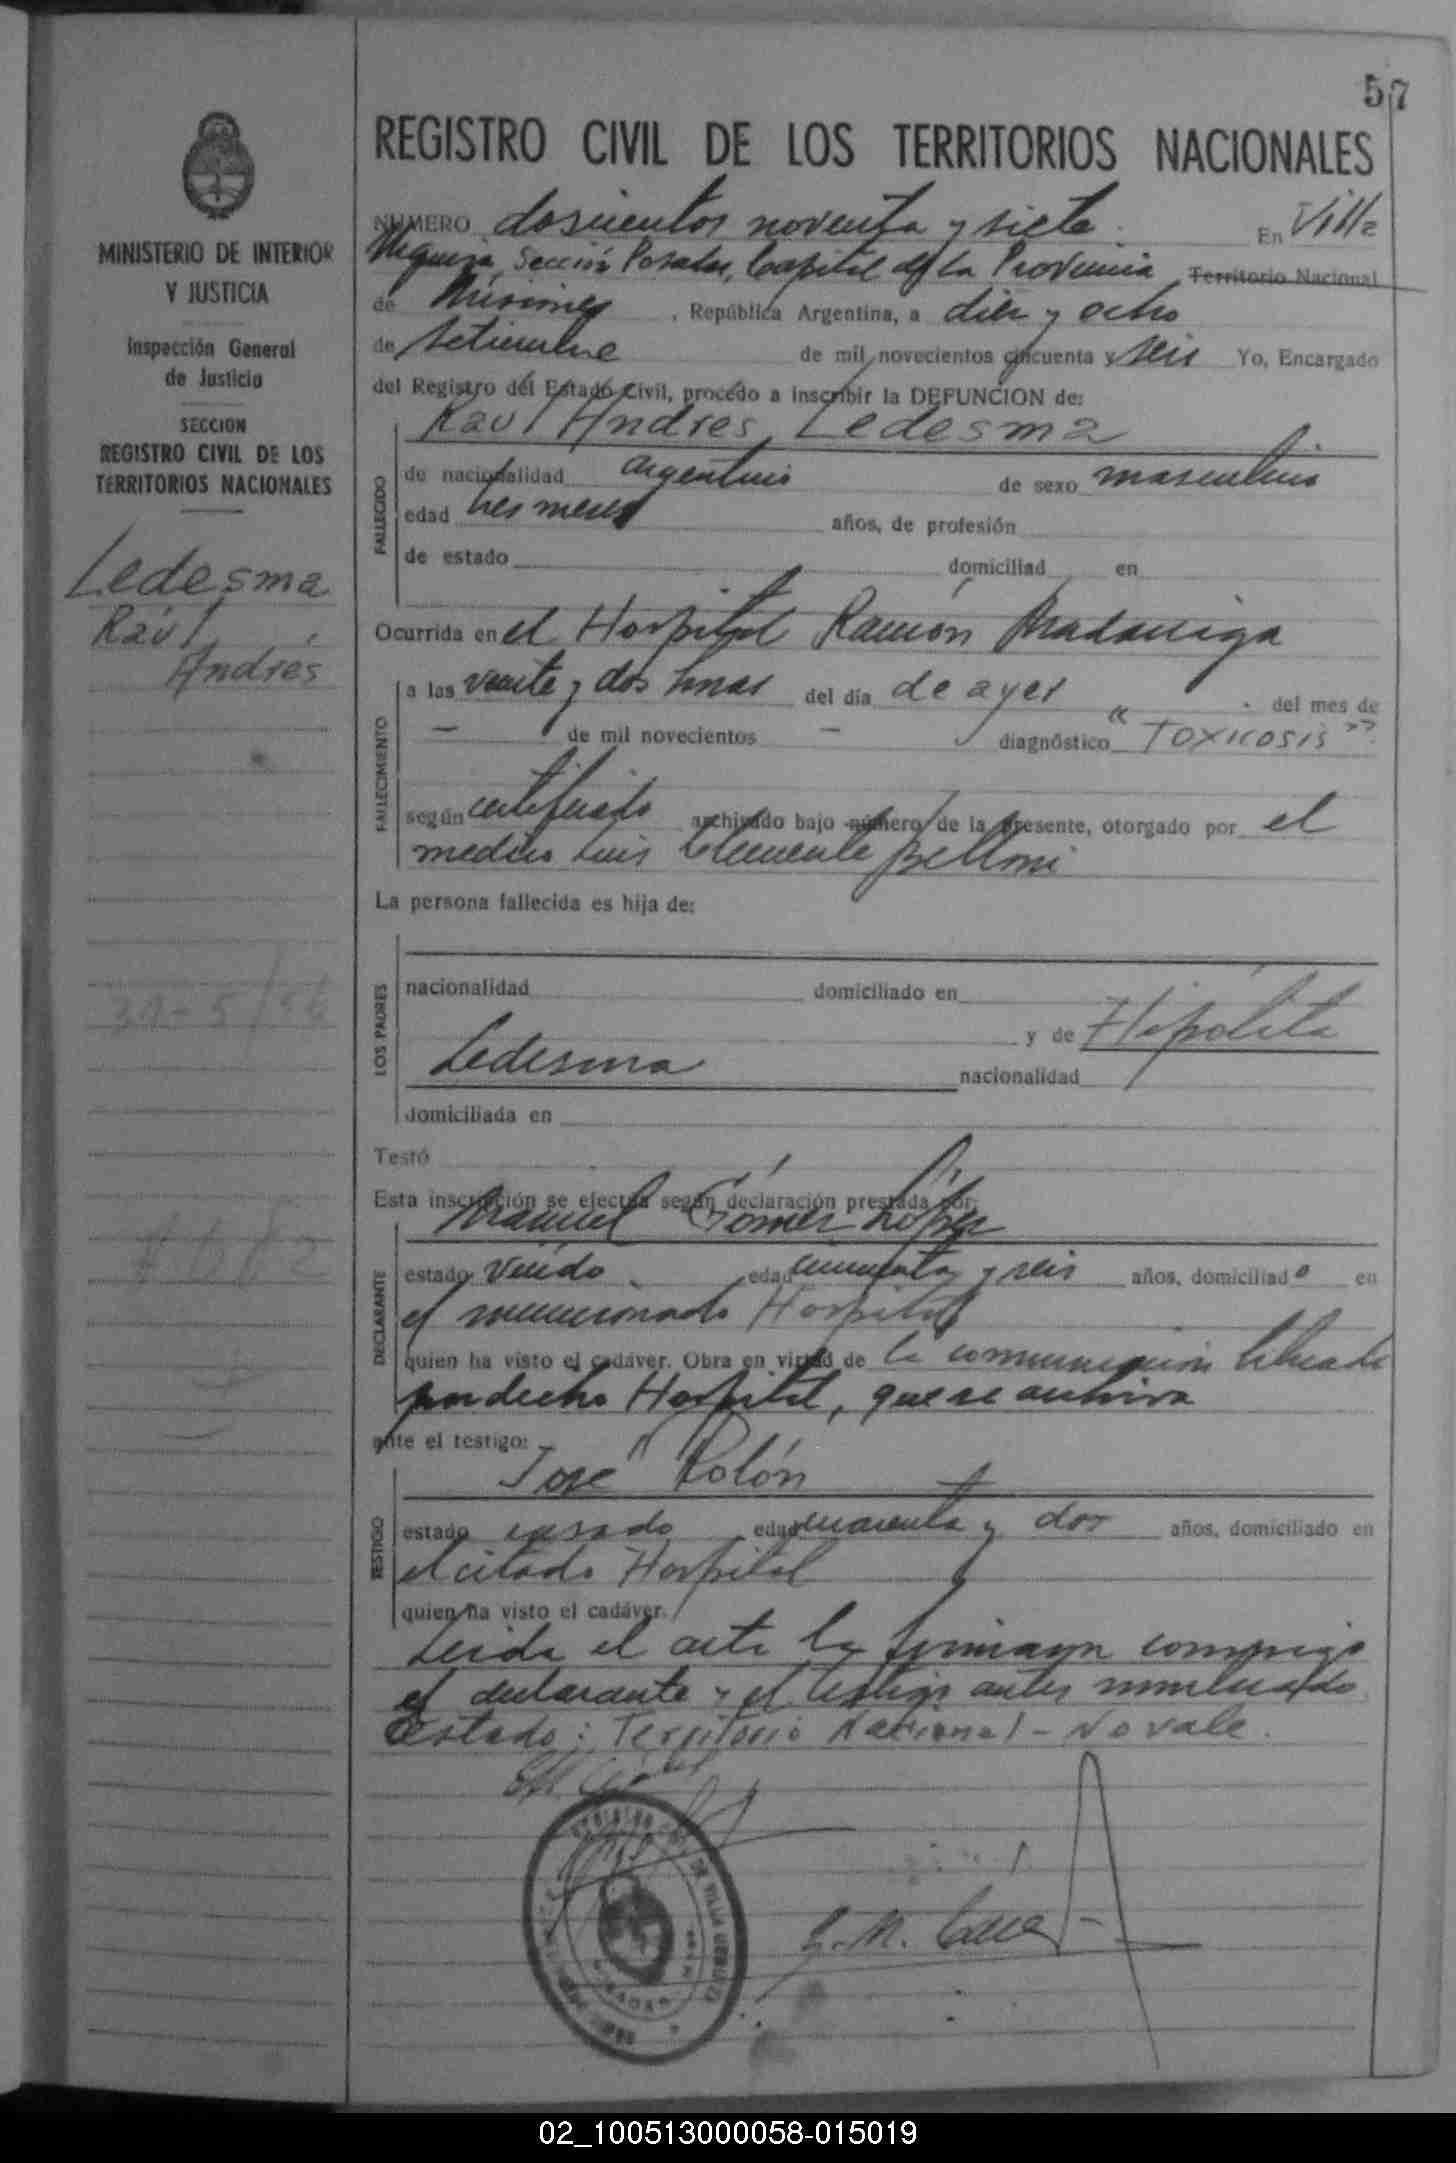 57
REGISTRO CIVIL DE LOS TERRITORIOS NACIONALES
MINISTERIO DE INTERIOR
Y JUSTICIA
Inspección General
de Justicia
SECCION
REGISTRO CIVIL DE LOS
TERRITORIOS NACIONALES
Ledesma
Raúl
Andrés
NUMERO doscientos noventa y siete. En Villa
Sección Posadas, Capital de la Provincia Territorio Nacional
de Misiones, República Argentina, a diez y ocho
de setiembre de mil novecientos cincuenta y seis Yo, Encargado
del Registro del Estado Civil, procedo a inscribir la DEFUNCIÓN de:
Raúl Andrés Ledesma
FALLECIDO
de nacionalidad argentino de sexo masculino
edad tres meses años, de profesión
de estado domiciliad en
Ocurrida en el Hospital Ramón Madariaga
FALLECIMIENTO
a las veinte y dos horas del día de ayer del mes de
— de mil novecientos — diagnóstico "Toxicosis"
según certificado archivado bajo número de la presente, otorgado por el
medico Luis Clemente Belloni
La persona fallecida es hija de:
LOS PADRES
nacionalidad domiciliado en
y de Hipólita
Ledesma nacionalidad
domiciliada en
31-5/56
Testó
Esta inscripción se efectúa según declaración prestada por:
Manuel Gómez López
DECLARANTE
estado viudo edad cincuenta y seis años, domiciliado en
el mencionado Hospital
quien ha visto el cadáver. Obra en virtud de la comunicación librada
por dicho Hospital, que se archiva
ante el testigo:
José Rolón
TESTIGO
estado casado edad cuarenta y dos años, domiciliado en
el citado Hospital
quien ha visto el cadáver.
Leida el acta la firmaron conmigo
el declarante y el testigo antes nombrado
Testado: Territorio Nacional - No vale.
02_100513000058-015019